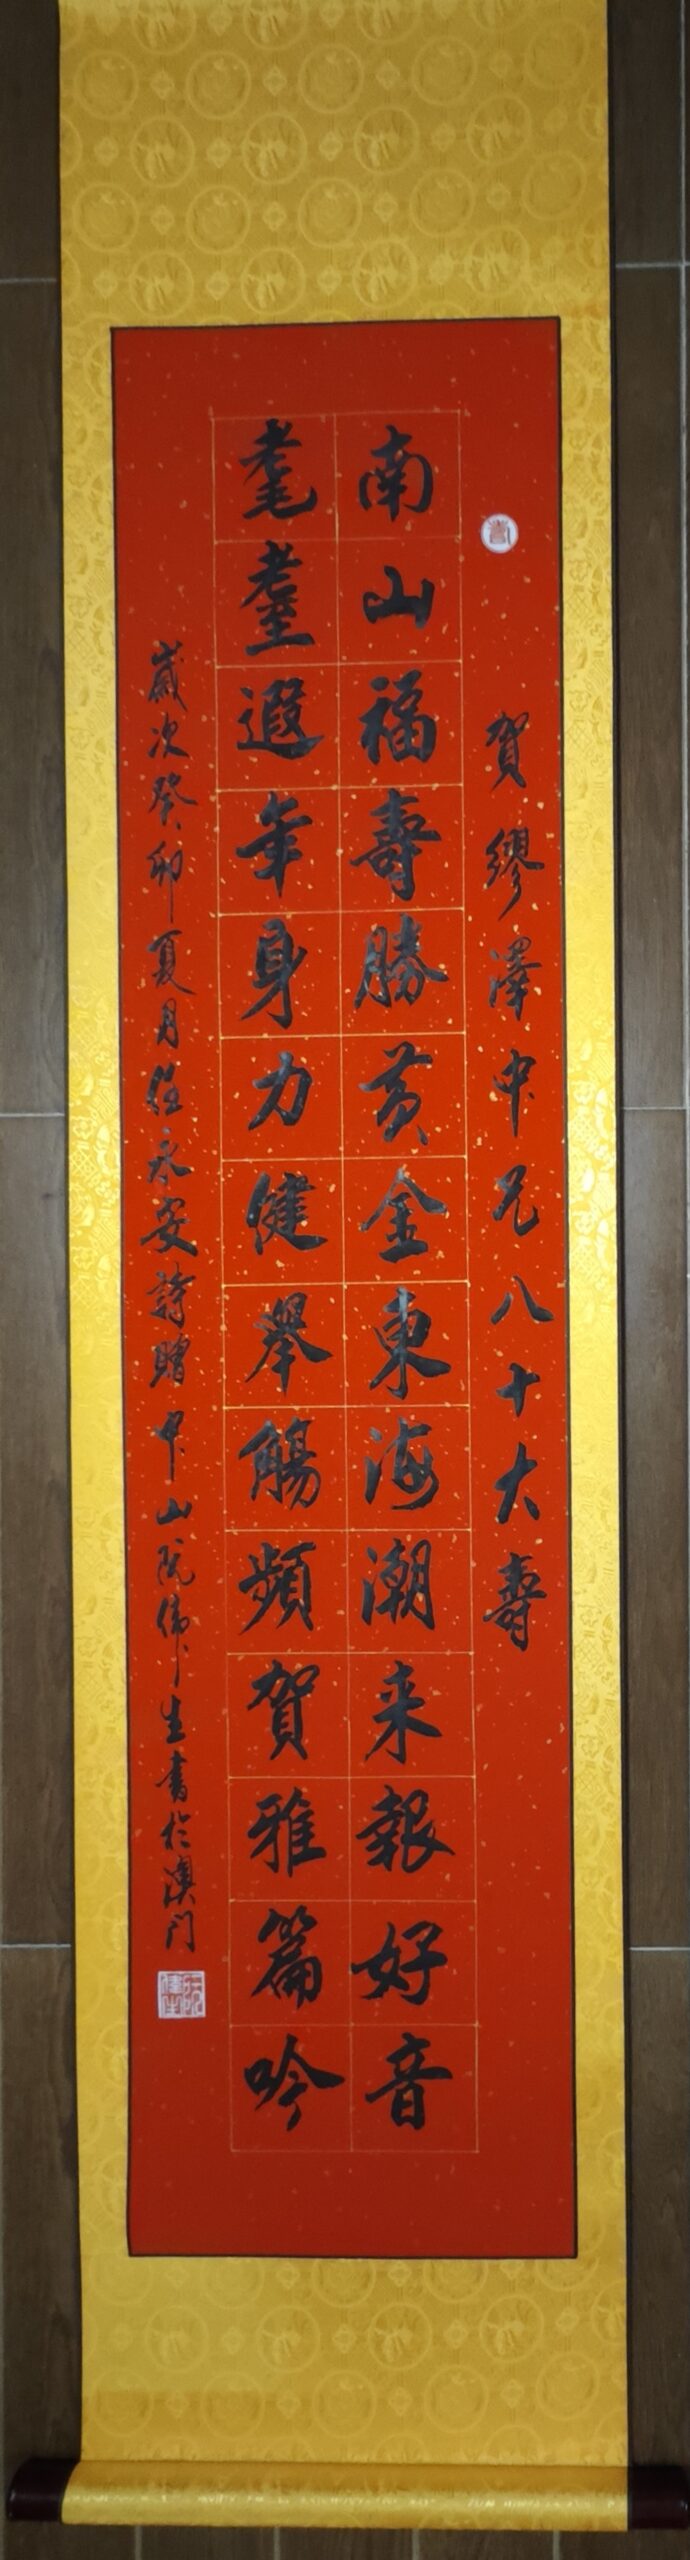 賀繆澤中兄八十大壽
南山福壽勝黃金東海潮来報好音
耄耋遐年身力健舉觴頻賀雅篇吟
歲次癸卯夏月任永安詩贈中山阮偉生書於澳门